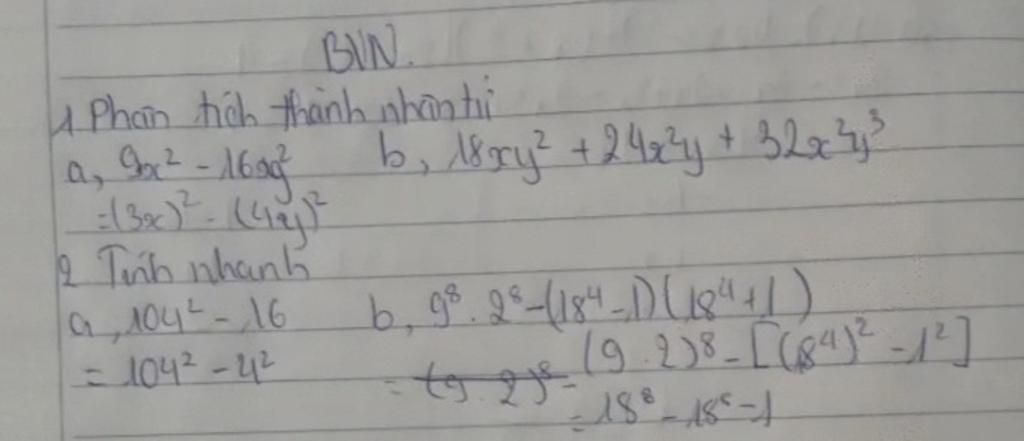 BVN.
1 Phân tích thành nhân tử
a, 9x² - 16y² b, 18xy² + 24x²y + 32x²y³
= (3x)² - (4y)²
2 Tính nhanh
a, 104² - 16 b, 9⁸ . 2⁸ - (18⁴ - 1)(18⁴ + 1)
= 104² - 4² = (9 . 2)⁸ - (9 . 2)⁸ - [(18⁴)² - 1²]
= 18⁸ - 18⁸ - 1